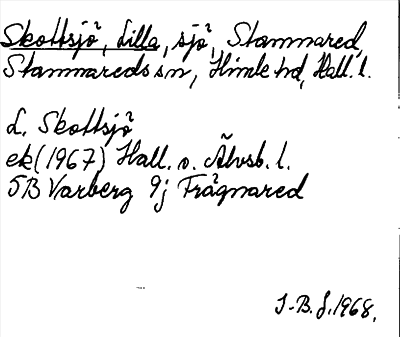 Skottsjö, Lilla, sjö, Stammared,
Stammareds sn, Himle hd, Hall. l.
L. Skottsjö
ek (1967) Hall. o. Älvsb. l.
5B Varberg 9j Frägnared
I.-B. J. 1968.